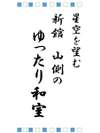 星空を望む
新館 山側の
ゆったり和室